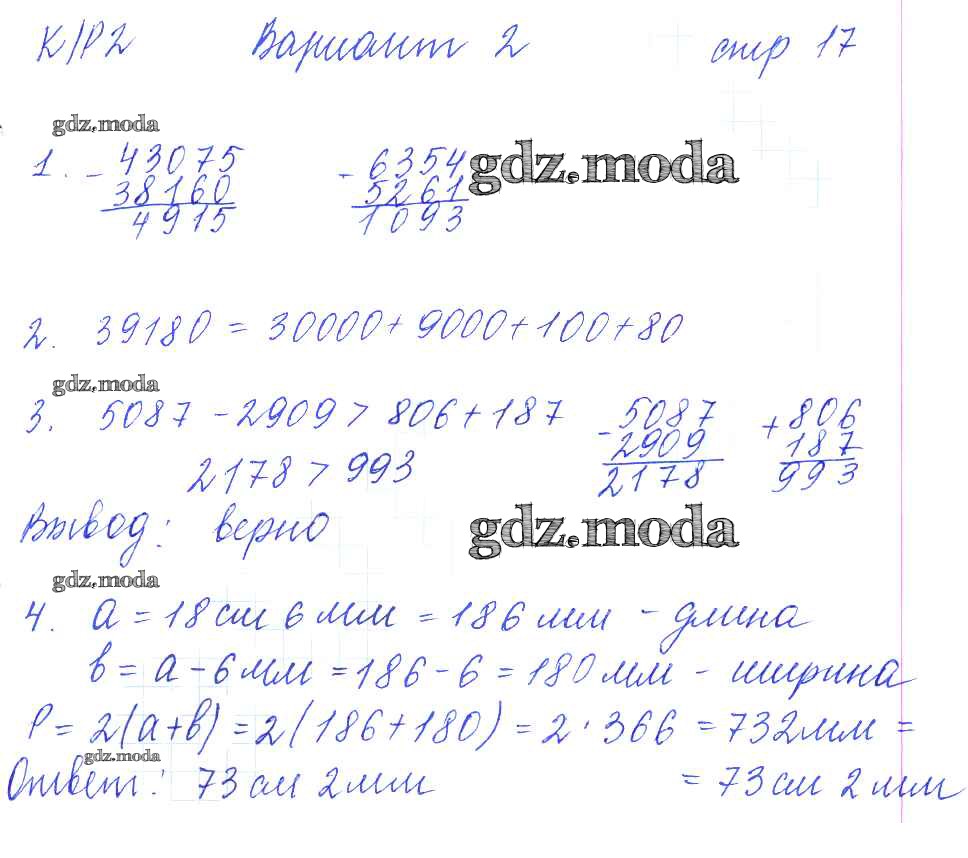 К/Р2 Вариант 2 стр 17
gdz.moda
1. - 43075 - 6354 gdz.moda
38160 5261
4915 1093
2. 39180 = 30000 + 9000 + 100 + 80
gdz.moda
3. 5087 - 2909 > 806 + 187 - 5087 + 806
2909 187
2178 > 993 2178 993
Вывод: верно gdz.moda
gdz.moda
4. a = 18 см 6 мм = 186 мм - длина
в = a - 6 мм = 186 - 6 = 180 мм - ширина
P = 2(a+в) = 2(186+180) = 2·366 = 732 мм =
gdz.moda
Ответ: 73 см 2 мм = 73 см 2 мм